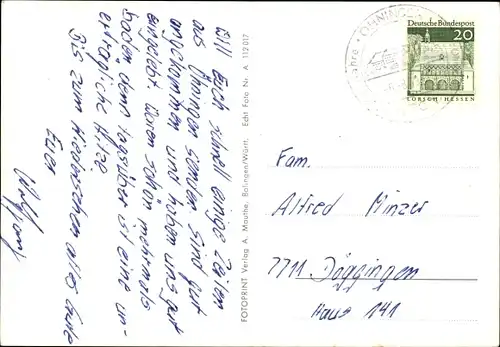 Will Euch schnell einige Zeilen
aus Öhningen senden. Sind gut
angekommen und haben uns gut
eingelebt. Waren schon mehrmals
baden, denn tagsüber ist eine un-
erträgliche Hitze.
Bis zum Wiedersehen alles Gute
Euer
Wolfgang
FOTOPRINT Verlag A. Mauthe, Balingen/Württ. Echt Foto Nr. A 112 017
ÖHNINGEN
Deutsche Bundespost
20
LORSCH · HESSEN
Fam.
Alfred Minzer
7711 Döggingen
Haus 141